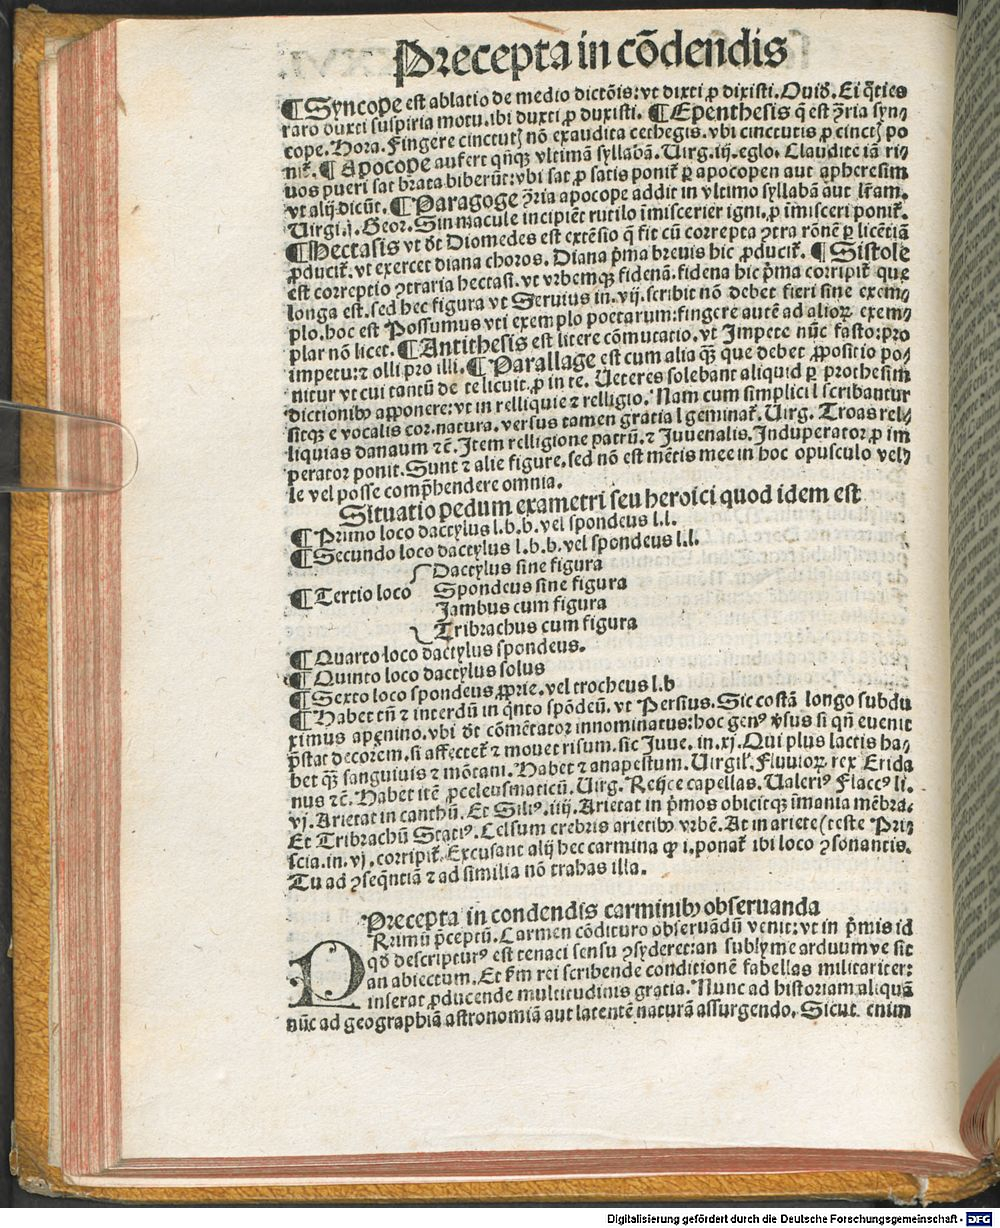 Precepta in cōdendis
¶ Syncope est ablatio de medio dictōis: vt dixti ꝓ dixisti. Ouid̄. Ei q̄ties
raro duxti suspiria motu. ibi duxti ꝓ duxisti. ¶ Epenthesis q̄ est ꝯ̄ria syn⸗
cope. Hora. Fingere cinctutꝭ nō exaudita cethegis. vbi cinctutis ꝓ cinctꝭ po
nit̄. ¶ Apocope aufert qn̄qꝫ vltimā syllabā. Uirg. iij. eglo. Claudite iā ri⸗
uos pueri sat ꝓrata biberūt: vbi sat ꝓ satis ponit̄ ꝑ apocopen aut apheresim
vt alij dicūt. ¶ Paragoge ꝯ̄ria apocope addit in vltimo syllabā aut lr̄am.
Uirgi. j. Geor. Sin macule incipiēt rutilo īmiscerier igni. ꝓ īmisceri ponit̄.
¶ Hectasis vt d̄t Diomedes est extēsio q̄ fit cū correpta ꝯtra rōnē ꝑ licētiā
ꝓducit̄. vt exercet diana choros. Diana p̄ma breuis hic ꝓducit̄. ¶ Sistole
est correptio ꝯtraria hectasi. vt vrbemqꝫ fidenā. fidena hic p̄ma corripit̄ que
longa est. sed hec figura vt Seruius in. vij. scribit nō debet fieri sine exem⸗
plo. hoc est Possumus vti exemplo poetarum: fingere autē ad alioꝝ exem⸗
plar nō licet. ¶ Antithesis est litere cōmutatio. vt Impete nūc fasto: pro
impetu: ⁊ olli pro illi. ¶ Parallage est cum alia q̄ꝫ que debet ꝓpositio po⸗
nitur vt cui tantū de te licuit. ꝓ in te. Ueteres solebant aliquid ꝑ prothesim
dictionibꝫ apponere: vt in relliquie ⁊ relligio. Nam cum simplici l scribantur
sitqꝫ e vocalis cor. natura. versus tamen gratia l geminat̄. Uirg. Troas rel⸗
liquias danaum ⁊c̄. Item relligione patrū. ⁊ Juuenalis. Induperator ꝓ im
perator ponit. Sunt ⁊ alie figure. sed nō est mētis mee in hoc opusculo vel⸗
le vel posse comp̄hendere omnia.
Situatio pedum exametri seu heroici quod idem est
¶ Primo loco dactylus l. b. b. vel spondeus l. l.
¶ Secundo loco dactylus l. b. b. vel spondeus l. l.
Dactylus sine figura
¶ Tertio loco Spondeus sine figura
Jambus cum figura
Tribrachus cum figura
¶ Quarto loco dactylus spondeus.
¶ Quinto loco dactylus solus
¶ Sexto loco spondeus ꝓprie. vel trocheus l. b
¶ Habet tn̄ ⁊ interdū in qⁱnto spōdeū. vt Persius. Sic costā longo subdu
ximus apenino. vbi d̄t cōmētator innominatus: hoc genꝰ v̄sus si qn̄ euenit
p̄stat decorem. si affectet̄ ⁊ mouet risum. sic Juue. in. xj. Qui plus lactis ha⸗
bet q̄ꝫ sanguinis ⁊ mōtani. Habet ⁊ anapestum. Uirgil̄. Fluuioꝝ rex Erida
nus ⁊c̄. Habet itē ꝓceleusmaticū. Uirg. Reijce capellas. Ualeriꝰ Flaccꝰ li.
vj. Arietat in canthū. Et Siliꝰ. iiij. Arietat in p̄mos obicitqꝫ īmania mēbra.
Et Tribrachū Statiꝰ. Celsum crebris arietibꝫ vrbē. At in ariete (teste Pri⸗
scia. in. vj. corripit̄. Excusant alij hec carmina ꝙ i. ponat̄ ibi loco ꝯsonantis.
Tu ad ꝯseq̄ntiā ⁊ ad similia nō trahas illa.
Precepta in condendis carminibꝫ obseruanda
PRimū p̄ceptū. Carmen cōdituro obseruādū venit: vt in p̄mis id
qd̄ descripturꝰ est tenaci sensu ꝯsyderet: an sublyme arduumve sit
an abiectum. Et ẜm rei scribende conditionē fabellas militariter:
inserat ꝓducende multitudinis gratia. Nunc ad historiam aliquā
nūc ad geographiā astronomiā aut latentē naturā assurgendo. Sicut enim
Digitalisierung gefördert durch die Deutsche Forschungsgemeinschaft - DFG